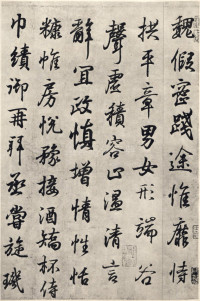 魏假踐途惟靡恃
拱平章男女形端谷
聲虛積容止温清言
辭宜政慎增情性恬
糠帷房悅豫接酒矯杯侍
巾績御再拜丞嘗旋璣